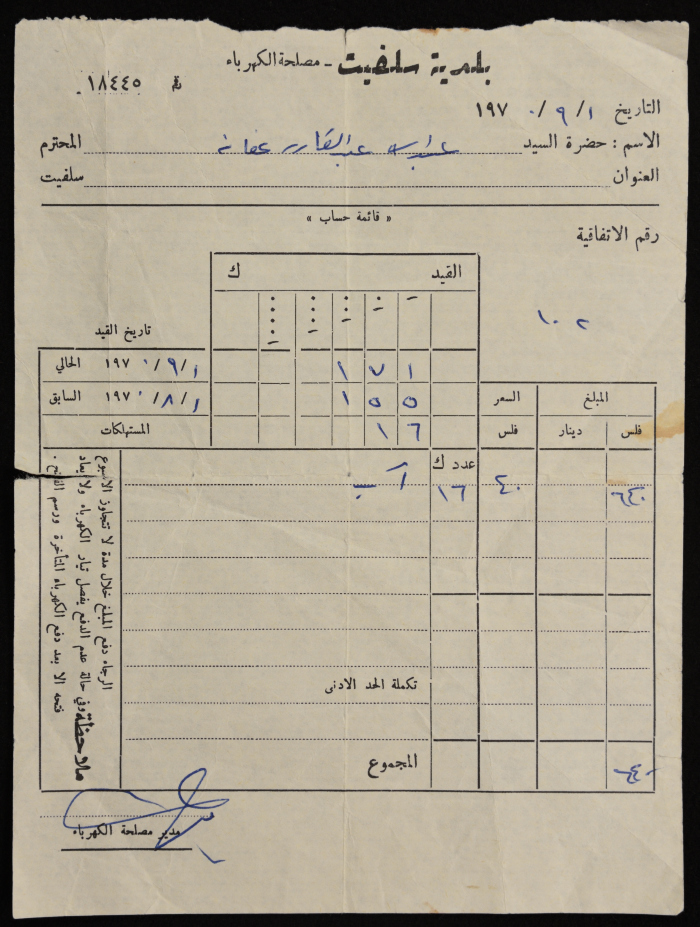 بلدية سلفيت - مصلحة الكهرباء
رقم ١٨٤٤٥
التاريخ ١/٩/١٩٧٠
الاسم : حضرة السيد عبد القادر عفانه المحترم
العنوان سلفيت
« قائمة حساب »
رقم الاتفاقية
١٠٢
القيد ك
١ ١٠ ١٠٠ ١٠٠٠ ١٠٠٠٠
تاريخ القيد
الحالي ١/٩/١٩٧٠ ١٧١
السابق ١/٨/١٩٧٠ ١٥٥
المستهلكات ١٦
المبلغ السعر
فلس دينار فلس
عدد ك
٦٤٠ ٤٠ ١٦ آب
تكملة الحد الادنى
المجموع
٦٤٠
ملاحظة
الرجاء دفع المبلغ خلال مدة لا تتجاوز الاسبوع
وفي حالة عدم الدفع يفصل تيار الكهرباء ولا يعاد
فتحه الا بعد دفع الكهرباء المتأخرة ورسم الفتح .
مدير مصلحة الكهرباء